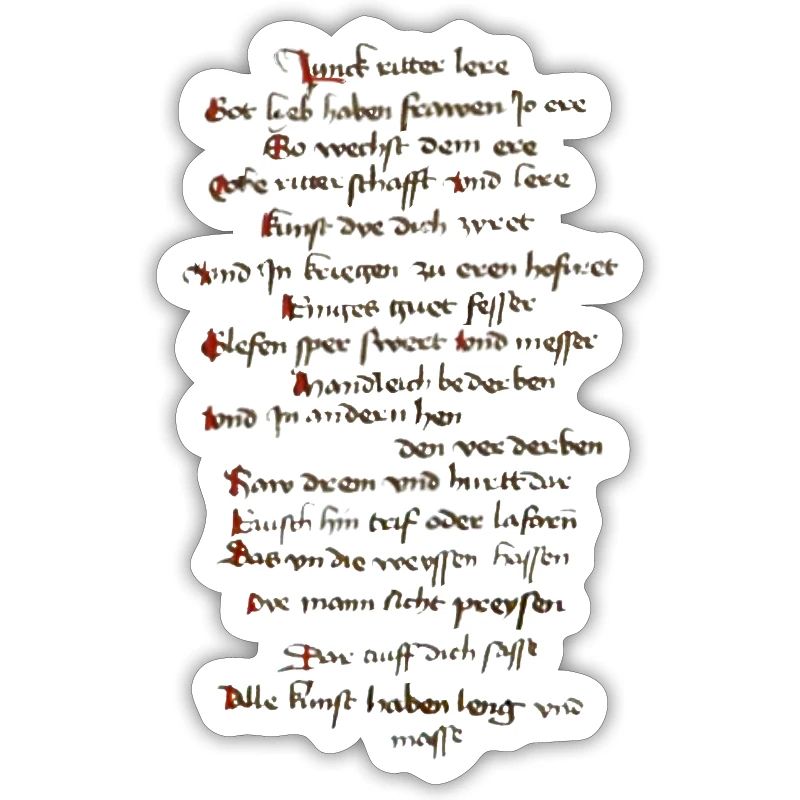 Junck ritter lere
Got lieb haben frawen Jo ere
So wechst dem ere
Vobe ritterschafft vnd lere
kunst dye dich zyret
vnd Jn kriegen zu eren hofiret
Ringes guet fesser
Glefen sper swert vnd messer
Mandleich bederben
vnd Jn andern hen
den verderben
Haw drein vnd hurtt dar
Rausch hin trif oder la farñ
Das yn die weyssen hassen
Dye mann sicht preysen
Dar auff dich fasse
Alle kunst haben leng vnd
masse